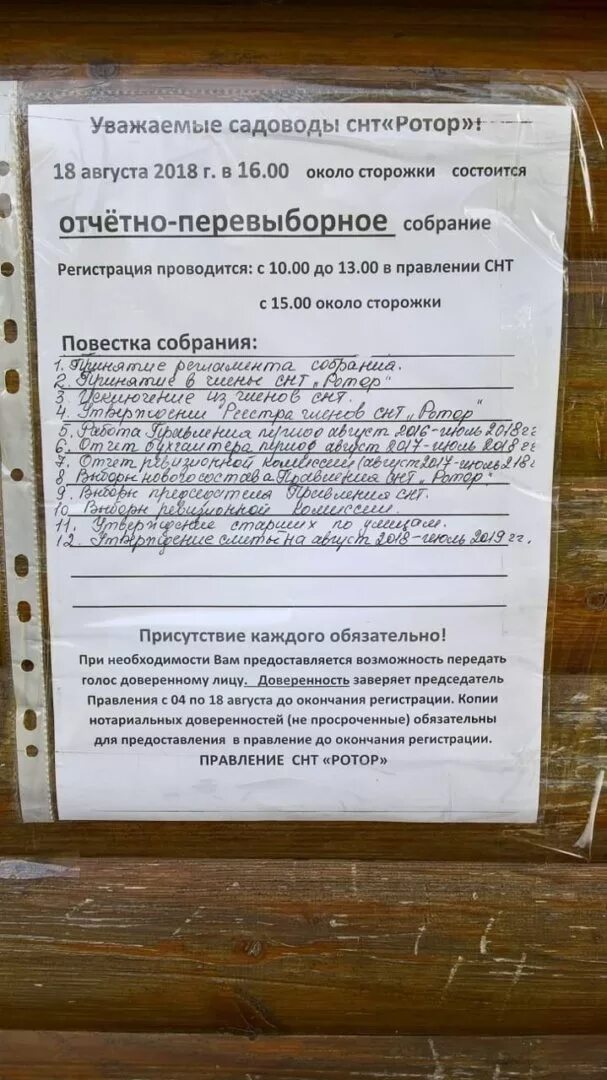 Уважаемые садоводы снт«Ротор»!
18 августа 2018 г. в 16.00 около сторожки состоится
отчётно-перевыборное собрание
Регистрация проводится: с 10.00 до 13.00 в правлении СНТ
с 15.00 около сторожки
Повестка собрания:
1. Принятие регламента собрания.
2. Принятие в члены СНТ „Ротор"
3. Исключение из членов снт.
4. Утверждении Реестра членов снт „Ротор"
5. Работа Правления период август 2016-июль 2018 гг
6. Отчет бухгалтера период август 2017-июль 2018 гг
7. Отчет ревизионной комиссии (август 2017-июль 2018г
8. Выборы нового состава Правления снт „Ротор"
9. Выборы председателя Правления снт.
10. Выборы ревизионной комиссии.
11. Утверждение старших по улицам.
12. Утверждение сметы на август 2018-июль 2019 гг.
Присутствие каждого обязательно!
При необходимости Вам предоставляется возможность передать
голос доверенному лицу. Доверенность заверяет председатель
Правления с 04 по 18 августа до окончания регистрации. Копии
нотариальных доверенностей (не просроченные) обязательны
для предоставления в правление до окончания регистрации.
ПРАВЛЕНИЕ СНТ «РОТОР»